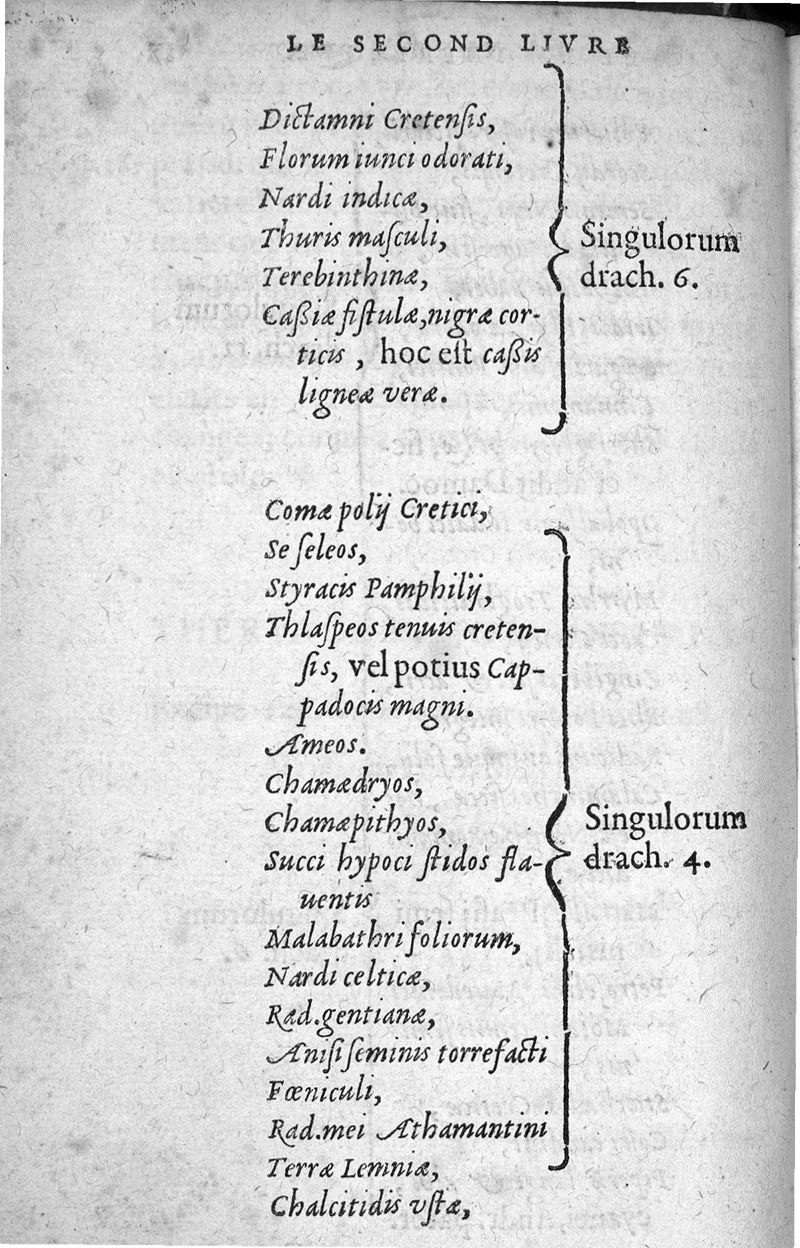 LE SECOND LIVRE
Dictamni Cretensis,
Florum iunci odorati,
Nardi indicæ,
Thuris masculi,
Terebinthinæ,
Caßiæ fistulæ, nigræ cor-
ticis, hoc est caßis
ligneæ veræ.
Singulorum
drach. 6.
Comæ polij Cretici,
Se seleos,
Styracis Pamphilij,
Thlaspeos tenuis creten-
sis, vel potius Cap-
padocis magni.
Ameos.
Chamædryos,
Chamæpithyos,
Succi hypoci stidos fla-
uentis
Malabathri foliorum,
Nardi celticæ,
Rad. gentianæ,
Anisi seminis torrefacti
Fœniculi,
Rad. mei Athamantini
Terræ Lemniæ,
Chalcitidis vstæ,
Singulorum
drach. 4.